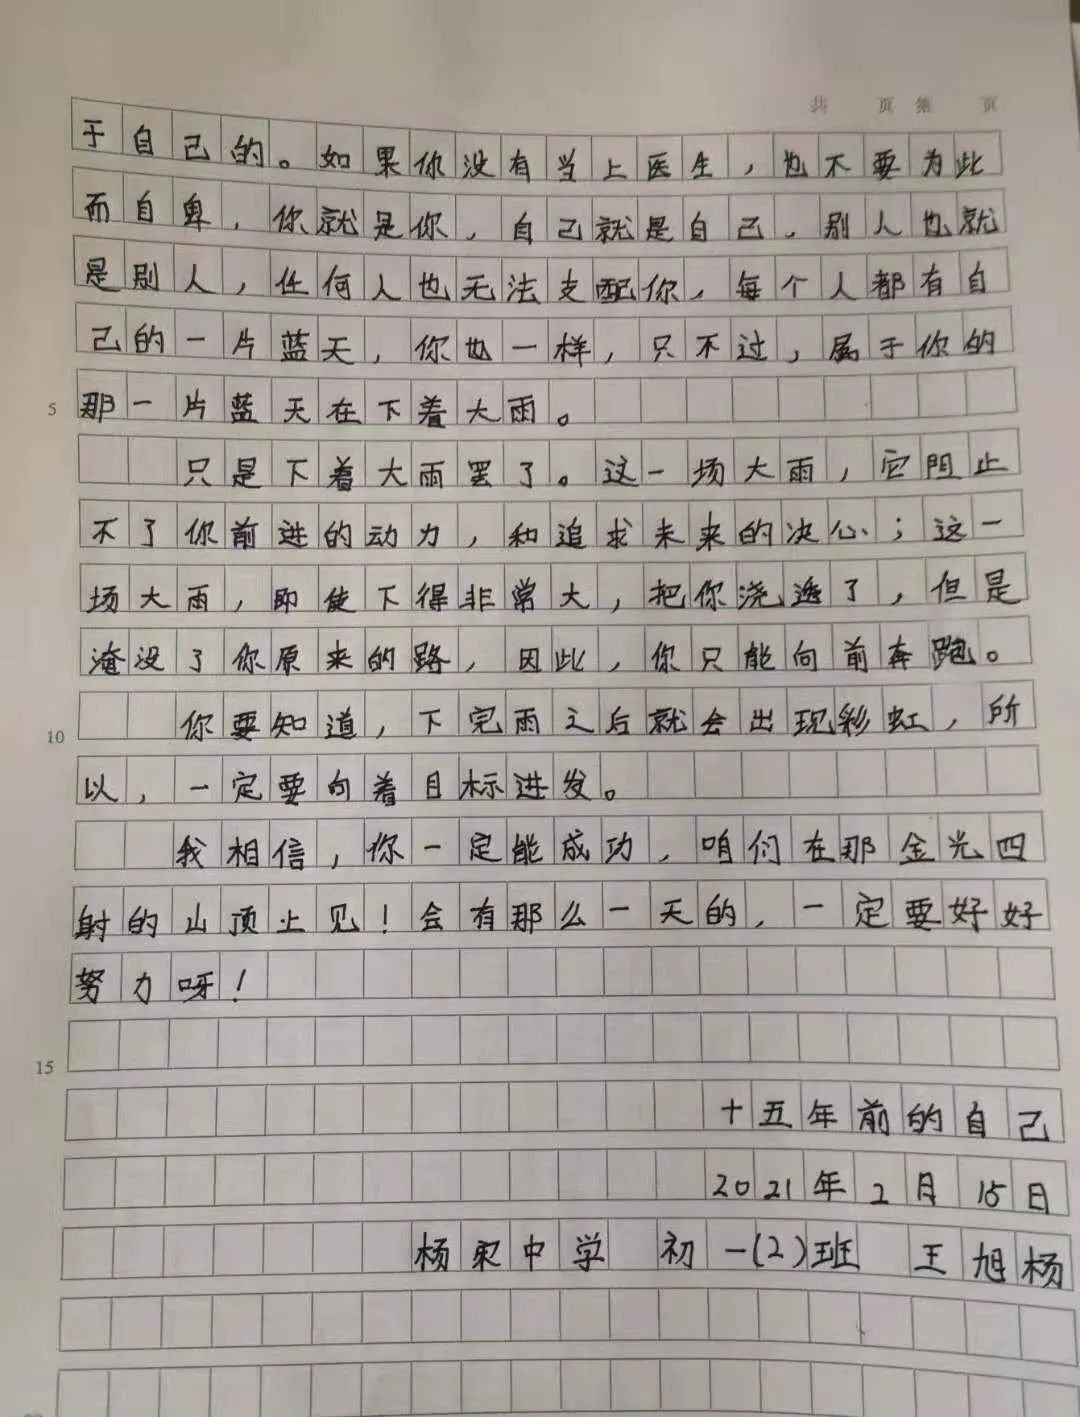 共 页 第 页
于自己的。如果你没有当上医生，也不要为此
而自卑，你就是你，自己就是自己，别人也就
是别人，任何人也无法支配你，每个人都有自
己的一片蓝天，你也一样，只不过，属于你的
5 那一片蓝天在下着大雨。
只是下着大雨罢了。这一场大雨，它阻止
不了你前进的动力，和追求未来的决心；这一
场大雨，即使下得非常大，把你浇透了，但是
淹没了你原来的路，因此，你只能向前奔跑。
10 你要知道，下完雨之后就会出现彩虹，所
以，一定要向着目标进发。
我相信，你一定能成功，咱们在那金光四
射的山顶上见！会有那么一天的，一定要好好
努力呀！
15
十五年前的自己
2021年2月15日
杨宋中学 初一(2)班 王旭杨